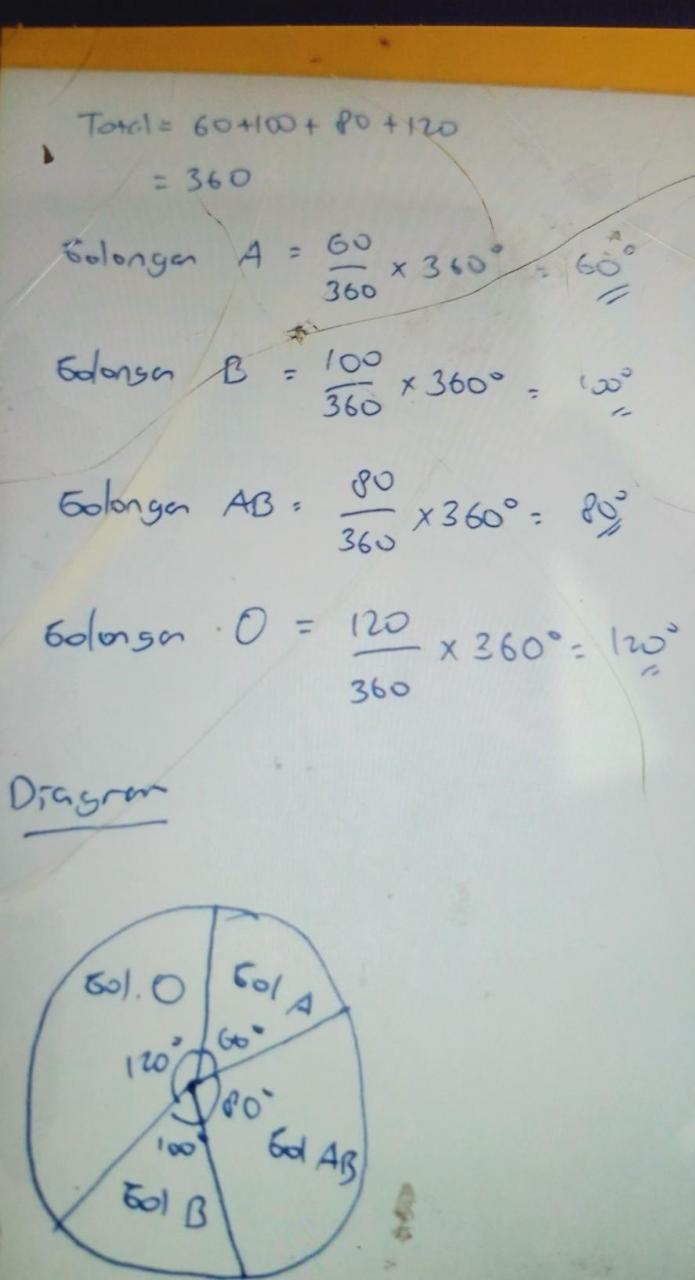 Total = 60+100+ 80 +120
= 360
Golongan A = 60/360 × 360° = 60°
Golongan B = 100/360 × 360° = 100°
Golongan AB = 80/360 × 360° = 80°
Golongan O = 120/360 × 360° = 120°
Diagram
Gol. O
Gol A
120° 60°
80°
100°
Gol AB
Gol B